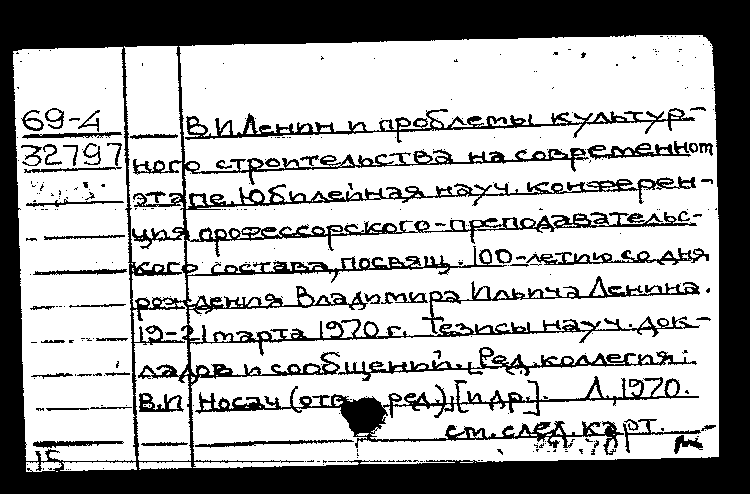 69-4 В.И.Ленин и проблемы культур-
32797 ного строительства на современном
этапе. Юбилейная науч. конферен-
ция профессорского-преподавательс-
кого состава, посвящ. 100-летию со дня
рождения Владимира Ильича Ленина.
19-21 марта 1970 г. Тезисы науч. док-
ладов и сообщений. [Ред. коллегия:
В.И. Носач (отв. ред.), [и др.]. Л., 1970.
см. след. карт.
15